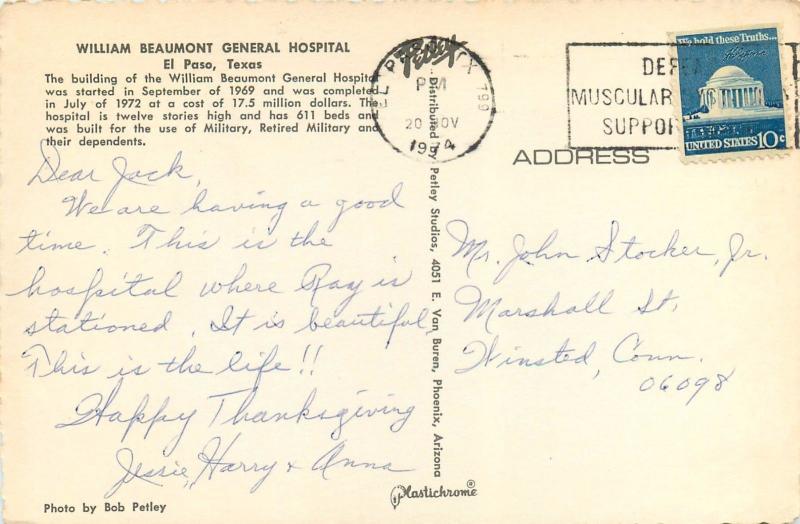 WILLIAM BEAUMONT GENERAL HOSPITAL
El Paso, Texas
The building of the William Beaumont General Hospital
was started in September of 1969 and was completed
in July of 1972 at a cost of 17.5 million dollars. The
hospital is twelve stories high and has 611 beds and
was built for the use of Military, Retired Military and
their dependents.
Dear Jack,
We are having a good
time. This is the
hospital where Ray is
stationed. It is beautiful
This is the life!!
Happy Thanksgiving
Jessie, Harry & Anna
Photo by Bob Petley
Petley
Distributed by Petley Studios, 4051 E. Van Buren, Phoenix, Arizona
Plastichrome®
EL P TX 799
PM
20 NOV
1974
MUSCULAR
SUPPOR
We hold these Truths...
UNITED STATES 10c
ADDRESS
Mr. John Stocker, Jr.
Marshall St.
Winsted, Conn.
06098